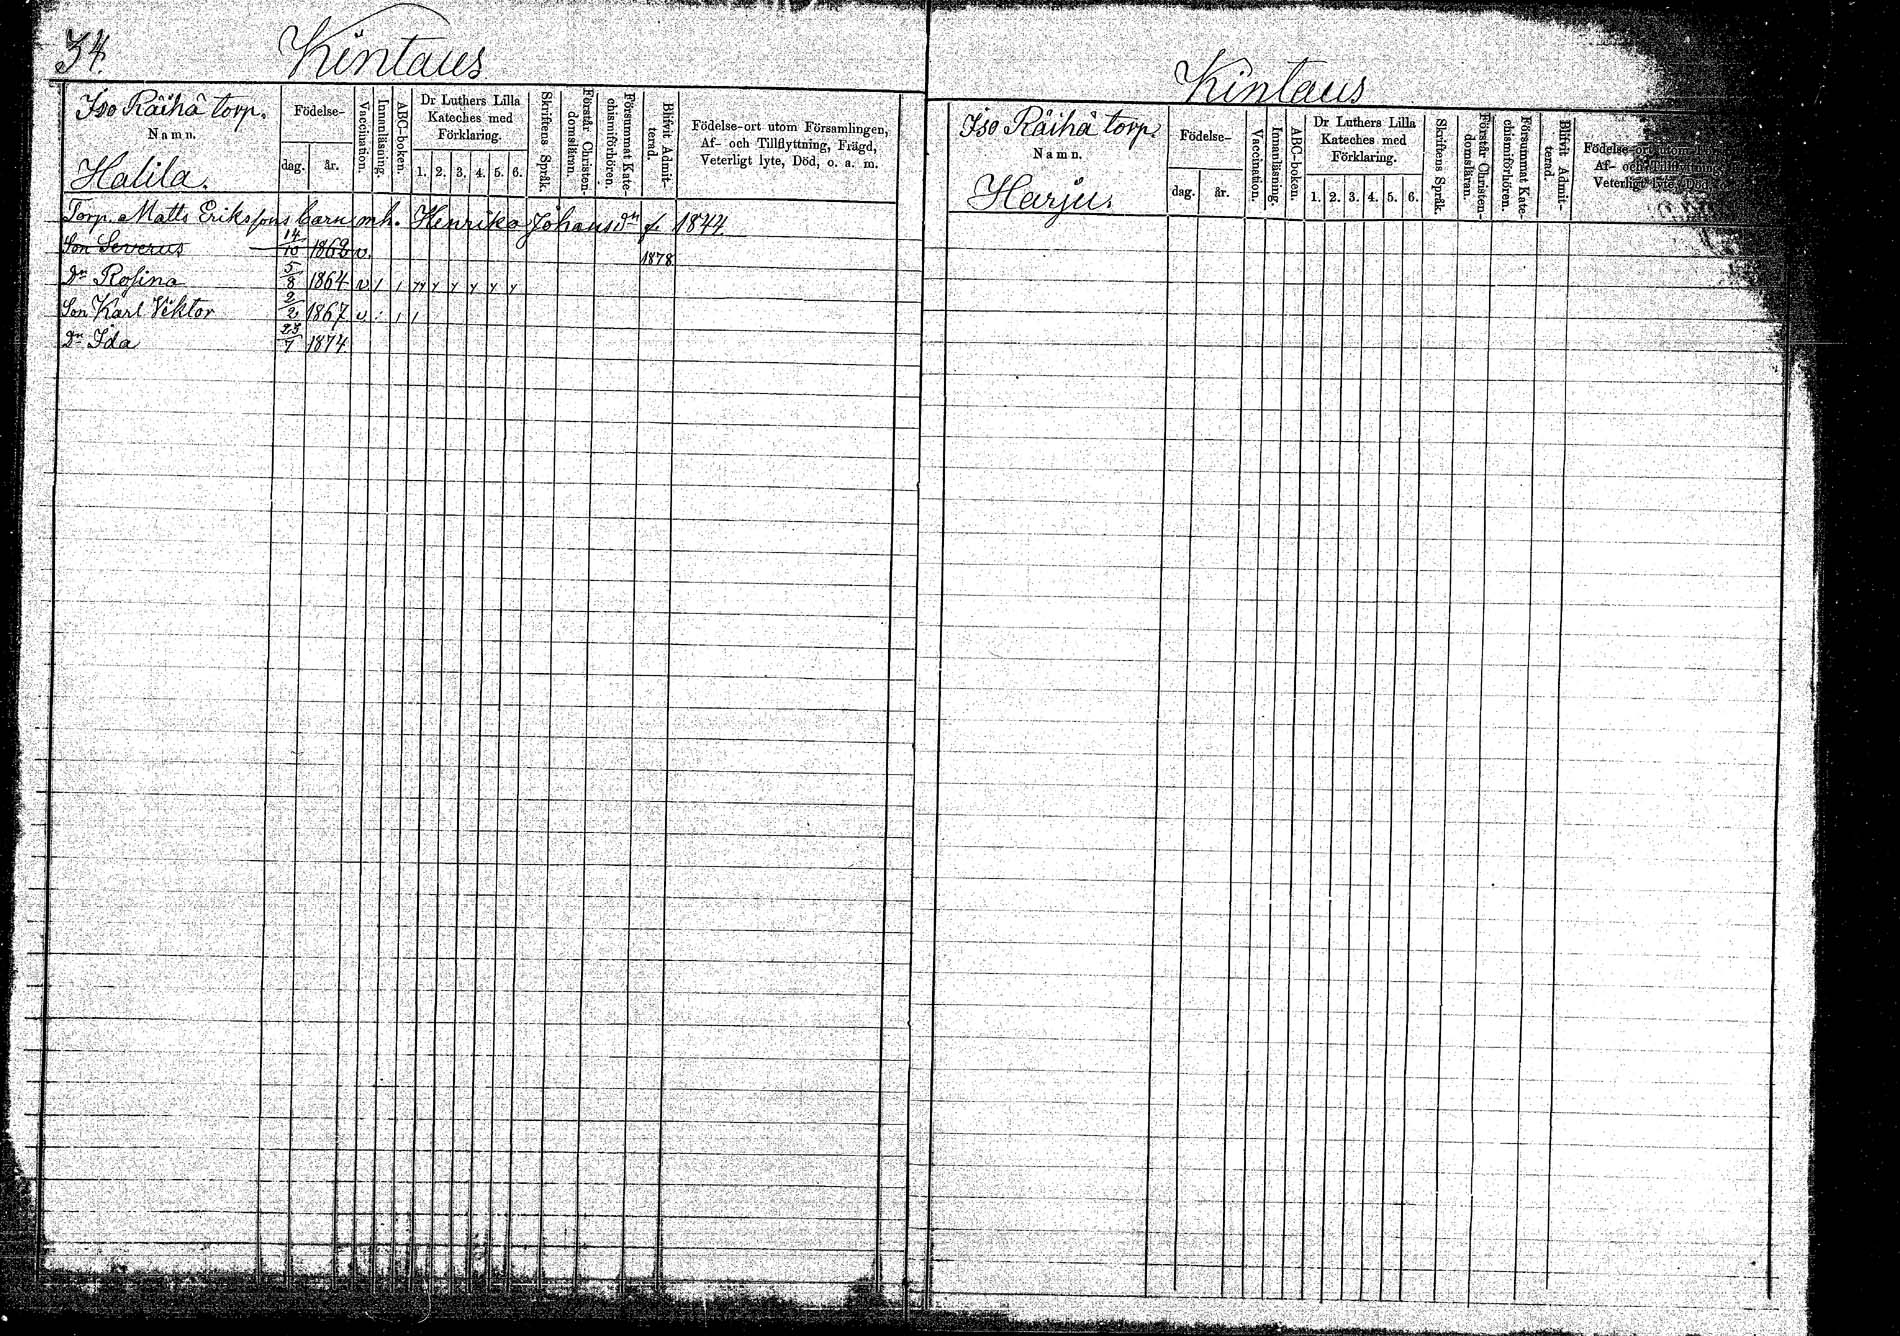 34.
Kintaus
Iso Räihä torp.
Namn.
Halila.
Födelse-
dag.
år.
Vaccination.
Innanläsning.
ABC-boken.
Dr Luthers Lilla
Kateches med
Förklaring.
1. 2. 3. 4. 5. 6.
Skriftens Språk.
Förstår Christen-
domslärän.
Försummat Kate-
chismiförhören.
Blifvit Admit-
terad.
Födelse-ort utom Församlingen,
Af- och Tillflyttning, Frägd,
Veterligt lyte, Död, o. a. m.
Torp. Matts Erikssons barn m.h. Henrika Johans dn f. 1844
Son Severus 14/10 1862 v. 1878
Dn Rosina 5/8 1864 v
Son Karl Viktor 2/2 1867 v
Dn Ida 23/7 1874
Kintaus
Iso Räihä torp.
Namn.
Harju.
Födelse-
dag.
år.
Vaccination.
Innanläsning.
ABC-boken.
Dr Luthers Lilla
Kateches med
Förklaring.
1. 2. 3. 4. 5. 6.
Skriftens Språk.
Förstår Christen-
domsläran.
Försummat Kate-
chismiförhören.
Blifvit Admit-
terad.
Födelse-ort utom
Af- och Tillflyttning
Veterligt lyte, Död